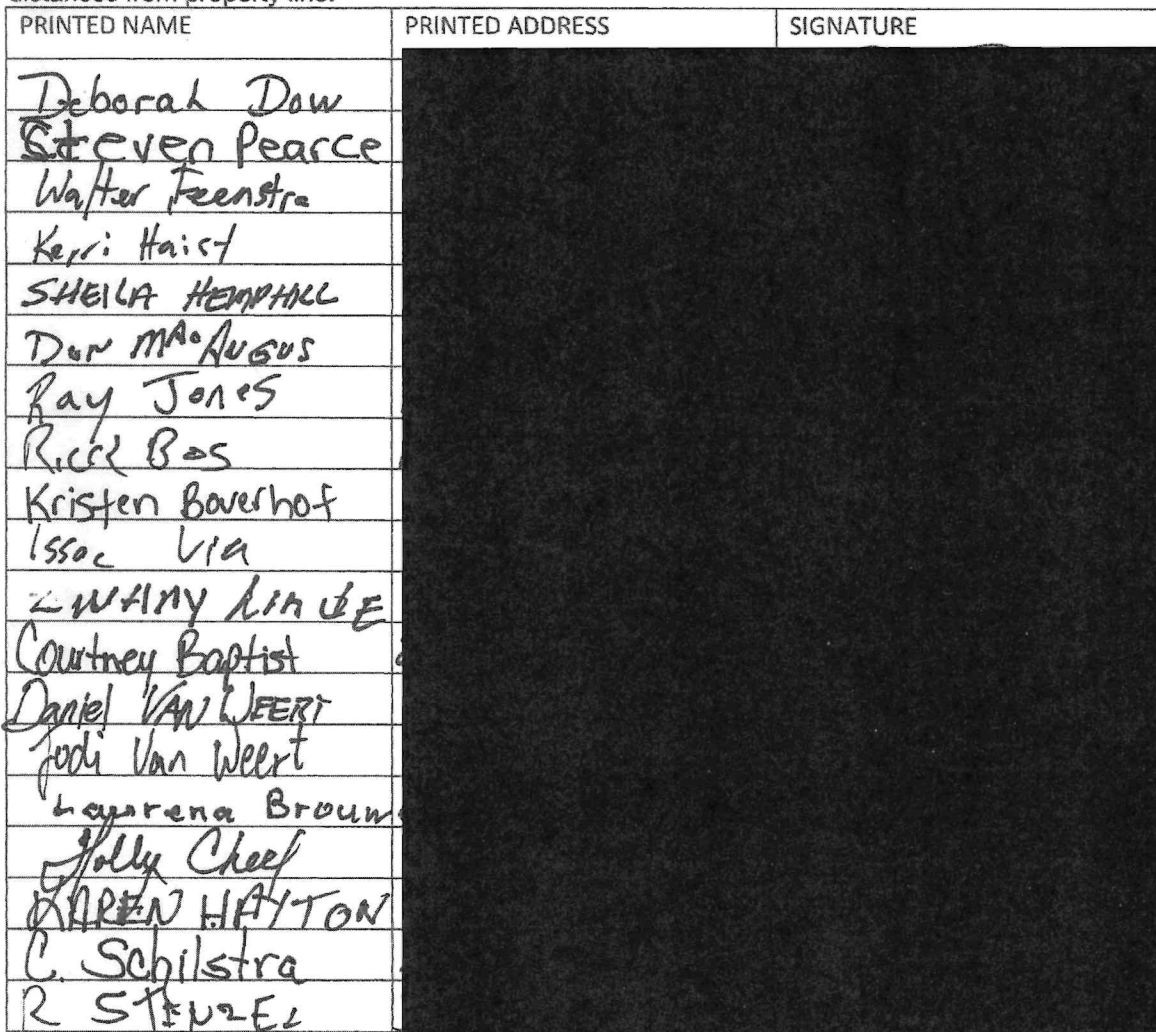 distances from property line.
PRINTED NAME PRINTED ADDRESS SIGNATURE
Deborah Dow
Steven Pearce
Walter Feenstra
Kerri Haist
SHEILA HEMPHILL
Ray Jones
Rick Bos
Kristen Boverhof
Issac Via
Courtney Baptist
Daniel VAN WEERT
Jodi Van Weert
Laurena Brouw
Holly Cheel
KAREN HAYTON
C. Schilstra
R STENZEL